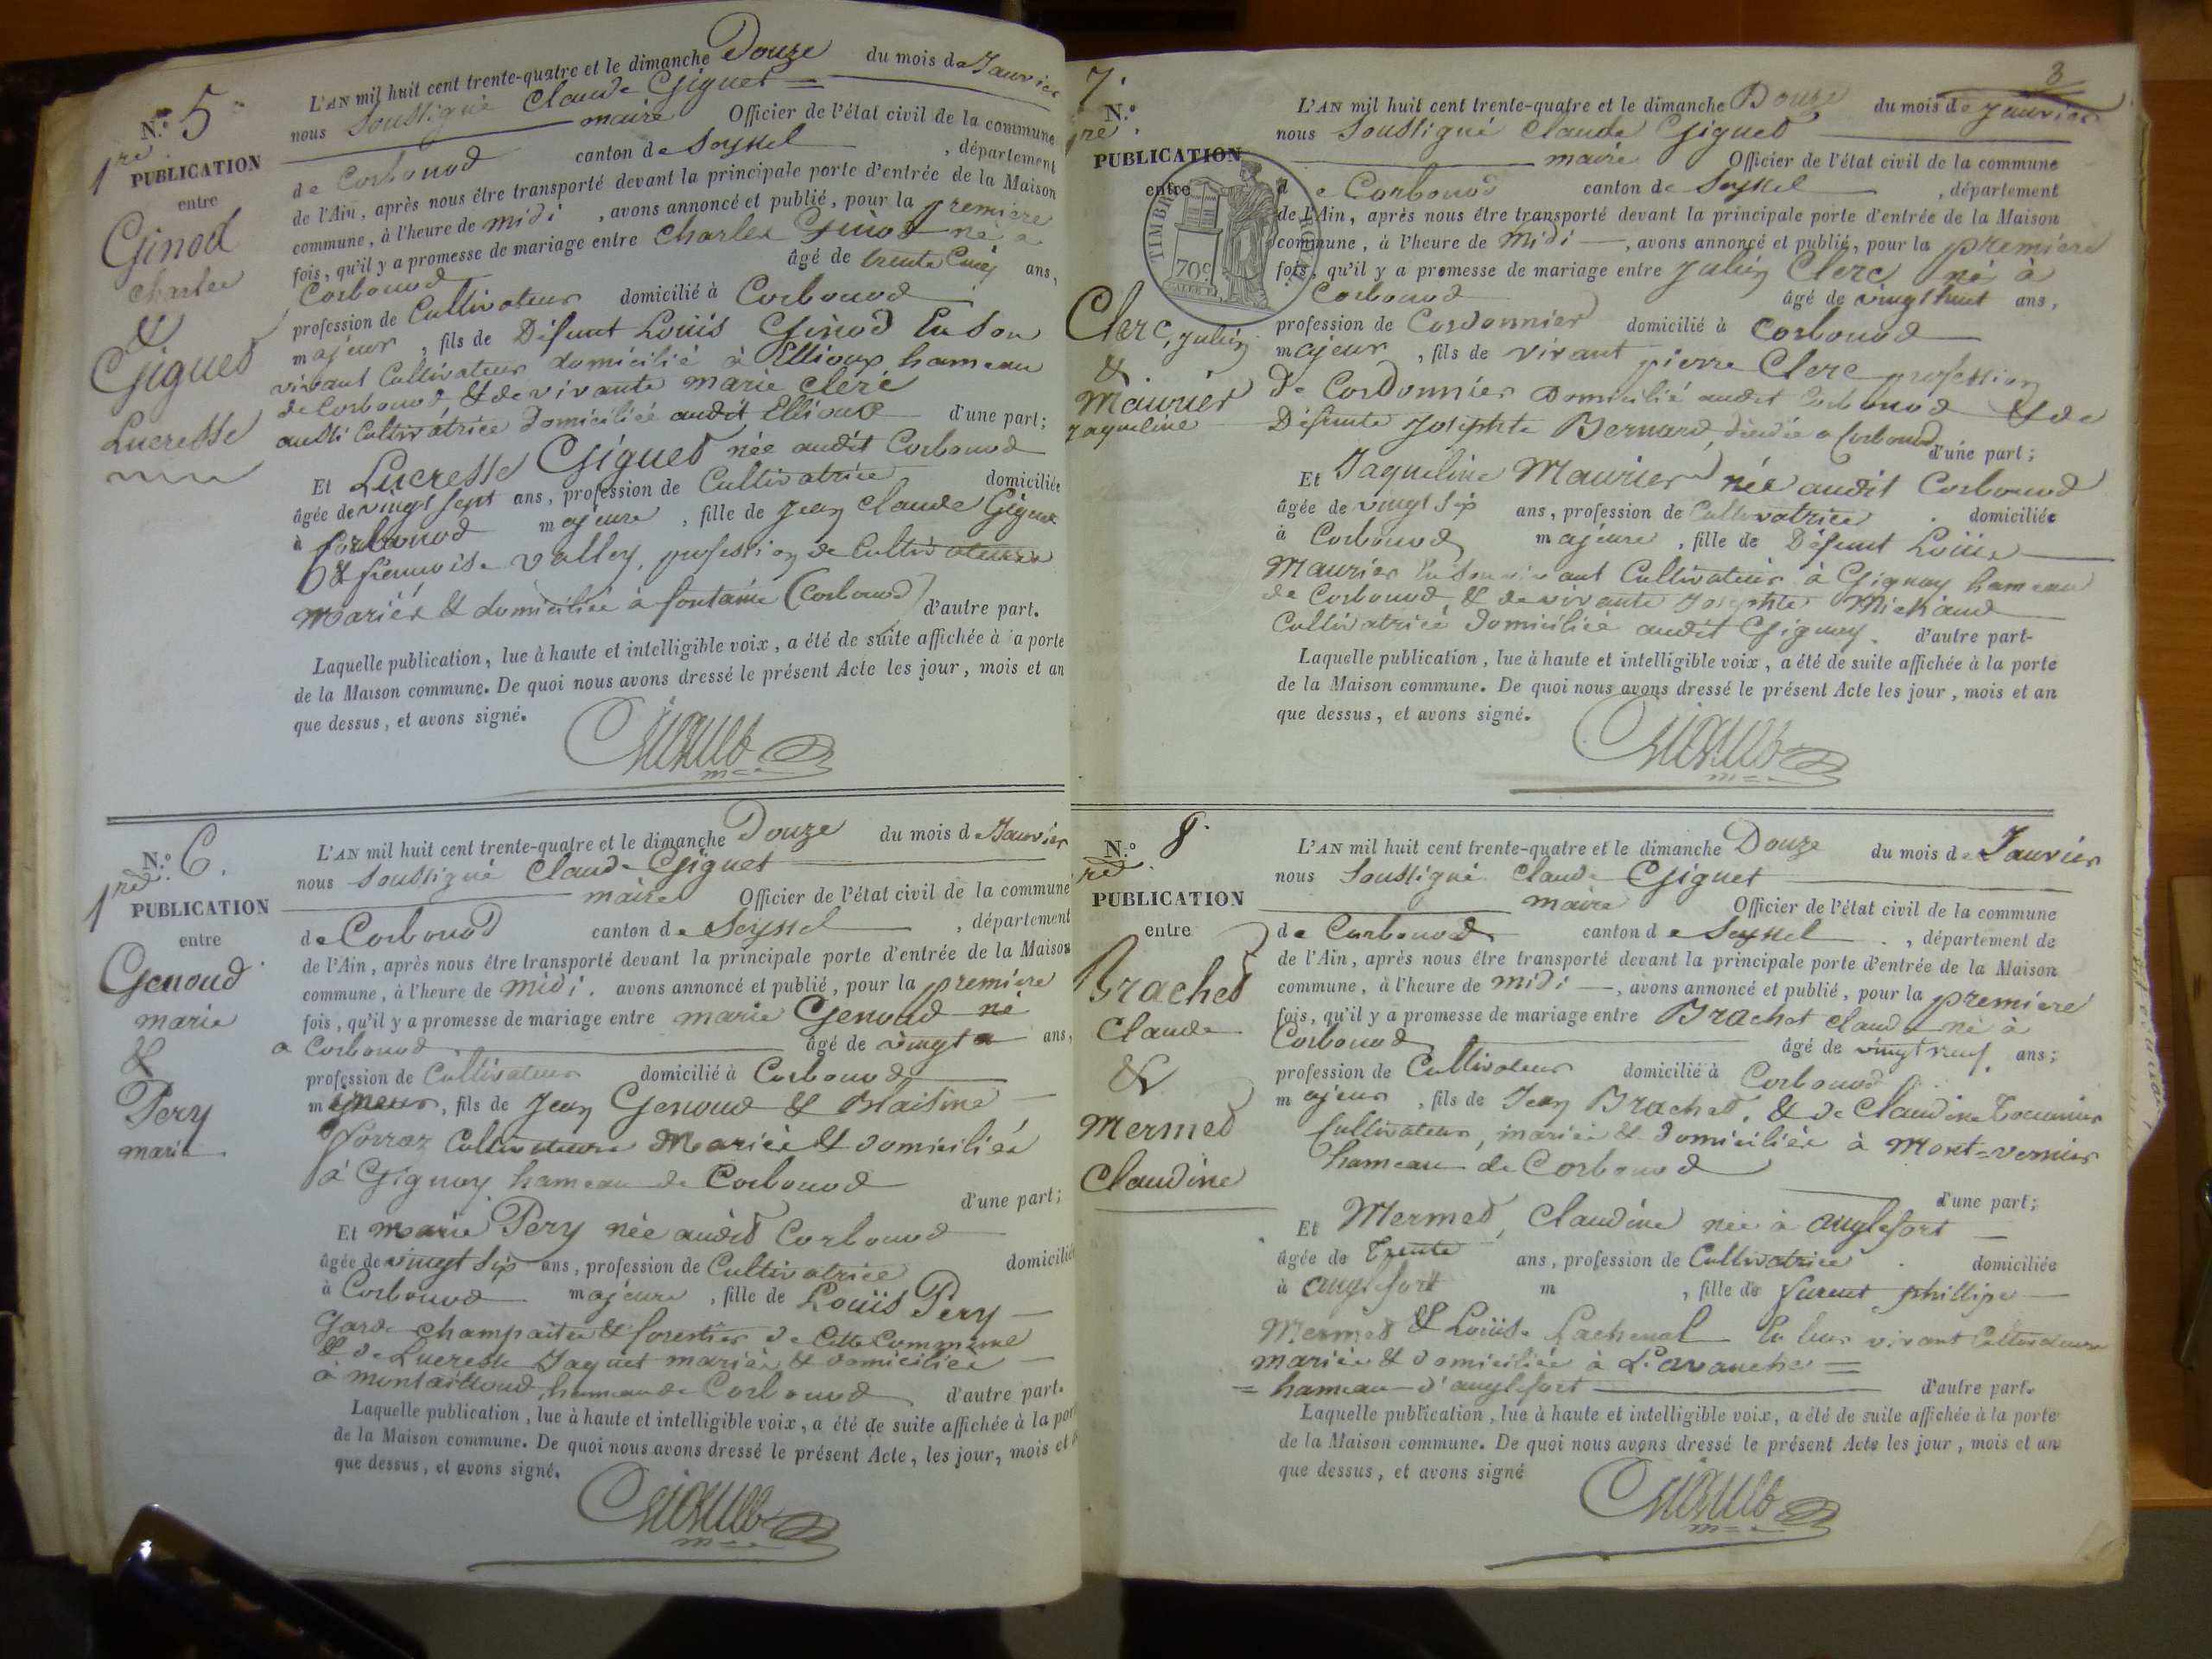 N.º 5
1re
PUBLICATION
entre
Ginod
Charles
&
Giguet
Lucresse
L'AN mil huit cent trente-quatre et le dimanche Douze du mois de Janvier
nous Soussigné Claude Giguet
maire Officier de l'état civil de la commune
de Corbonod canton de Seyssel , département
de l'Ain, après nous être transporté devant la principale porte d'entrée de la Maison
commune, à l'heure de midi , avons annoncé et publié, pour la premiere
fois, qu'il y a promesse de mariage entre Charles Ginod né a
Corbonod âgé de trente Cinq ans,
profession de Cultivateur domicilié à Corbonod
majeur , fils de Défunt Louis Ginod En Son
vivant Cultivateur domicilié à Ellioux hameau
de Corbonod & de vivante marie clerc
aussi Cultivatrice Domiciliée audit Ellioux d'une part;
Et Lucresse Giguet née audit Corbonod
âgée de vingt sept ans, profession de Cultivatrice domiciliée
à Corbonod majeure , fille de Jean Claude Giguet
& francoise Valley, profession de Cultivateurs
mariés & domiciliés à fontaine (Corbonod) d'autre part.
Laquelle publication, lue à haute et intelligible voix, a été de suite affichée à la porte
de la Maison commune. De quoi nous avons dressé le présent Acte les jour, mois et an
que dessus, et avons signé.
Giguet
N.º 6.
1re
PUBLICATION
entre
Genoud
marie
&
Pery
marie
L'AN mil huit cent trente-quatre et le dimanche Douze du mois de Janvier
nous Soussigné Claude Giguet
maire Officier de l'état civil de la commune
de Corbonod canton de Seyssel , département
de l'Ain, après nous être transporté devant la principale porte d'entrée de la Maison
commune, à l'heure de midi. avons annoncé et publié, pour la premiere
fois, qu'il y a promesse de mariage entre marie Genoud né
a Corbonod âgé de vingt ans,
profession de Cultivateur domicilié à Corbonod
mineur, fils de Jean Genoud &
Cultivateurs Mariés & domiciliés
à Gignay hameau de Corbonod
d'une part;
Et marie Pery née audit Corbonod
âgée de vingt six ans, profession de Cultivatrice domiciliée
à Corbonod majeure , fille de Louis Pery
Garde champaitre & forestier de Cette Commune
& de Lucresse Jaquet mariés & domiciliés
à hameau de Corbonod d'autre part.
Laquelle publication, lue à haute et intelligible voix, a été de suite affichée à la porte
de la Maison commune. De quoi nous avons dressé le présent Acte, les jour, mois et
que dessus, et avons signé.
Giguet
3
7.
N.º
1re
PUBLICATION
entre
TIMBRE ROYAL
70c
Clerc, Julien
&
Maurier
Jaqueline
L'AN mil huit cent trente-quatre et le dimanche Douze du mois de Janvier
nous Soussigné Claude Giguet
maire Officier de l'état civil de la commune
de Corbonod canton de Seyssel , département
de l'Ain, après nous être transporté devant la principale porte d'entrée de la Maison
commune, à l'heure de Midi , avons annoncé et publié, pour la premiere
fois, qu'il y a promesse de mariage entre Julien Clerc né à
Corbonod âgé de vingt huit ans,
profession de Cordonnier domicilié à Corbonod
majeur , fils de vivant pierre Clerc profession
de Cordonnier Domicilié audit Corbonod & de
Défunte Josephte Bernard, décédée a Corbonod d'une part;
Et Jaqueline Maurier née audit Corbonod
âgée de vingt six ans, profession de Cultivatrice domiciliée
à Corbonod majeure , fille de Défunt Louis
Maurier En Son vivant Cultivateur à Gignay hameau
de Corbonod & de vivante Josephte Michaud
Cultivatrice Domiciliée audit Gignay. d'autre part-
Laquelle publication, lue à haute et intelligible voix, a été de suite affichée à la porte
de la Maison commune. De quoi nous avons dressé le présent Acte les jour, mois et an
que dessus, et avons signé.
Giguet
N.º 8.
1re
PUBLICATION
entre
Brachet
Claude
&
Mermet
Claudine
L'AN mil huit cent trente-quatre et le dimanche Douze du mois de Janvier
nous Soussigné Claude Giguet
maire Officier de l'état civil de la commune
de Corbonod canton de Seyssel , département de
de l'Ain, après nous être transporté devant la principale porte d'entrée de la Maison
commune, à l'heure de midi , avons annoncé et publié, pour la premiere
fois, qu'il y a promesse de mariage entre Brachet claude né à
Corbonod âgé de vingt neuf ans;
profession de Cultivateur domicilié à Corbonod
majeur , fils de Jean Brachet, & de Claudine
Cultivateurs, mariés & Domiciliés à Mont=vernier
hameau de Corbonod
d'une part;
Et Mermet, Claudine née à anglefort
âgée de Trente ans, profession de Cultivatrice domiciliée
à anglefort m , fille de furent phillipe
Mermet & Louise Lachenal En leur vivant Cultivateurs
mariés & domiciliés à L'avanche =
= hameau d'anglefort d'autre part.
Laquelle publication, lue à haute et intelligible voix, a été de suite affichée à la porte
de la Maison commune. De quoi nous avons dressé le présent Acte les jour, mois et an
que dessus, et avons signé
Giguet